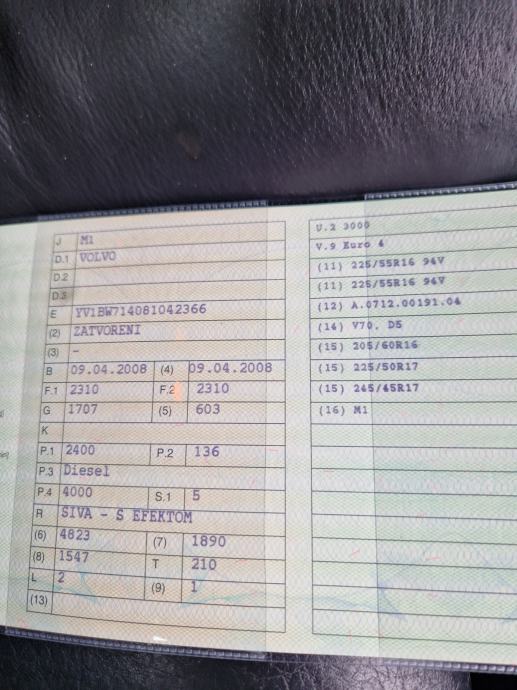 J M1
D.1 VOLVO
D.2
D.3
E YV1BW714081042366
(2) ZATVORENI
(3) –
B 09.04.2008 (4) 09.04.2008
F.1 2310 F.2 2310
G 1707 (5) 603
K
P.1 2400 P.2 136
P.3 Diesel
P.4 4000 S.1 5
R SIVA - S EFEKTOM
(6) 4823 (7) 1890
(8) 1547 T 210
L 2 (9) 1
(13)
U.2 3000
V.9 Euro 4
(11) 225/55R16 94V
(11) 225/55R16 94V
(12) A.0712.00191.04
(14) V70, D5
(15) 205/60R16
(15) 225/50R17
(15) 245/45R17
(16) M1